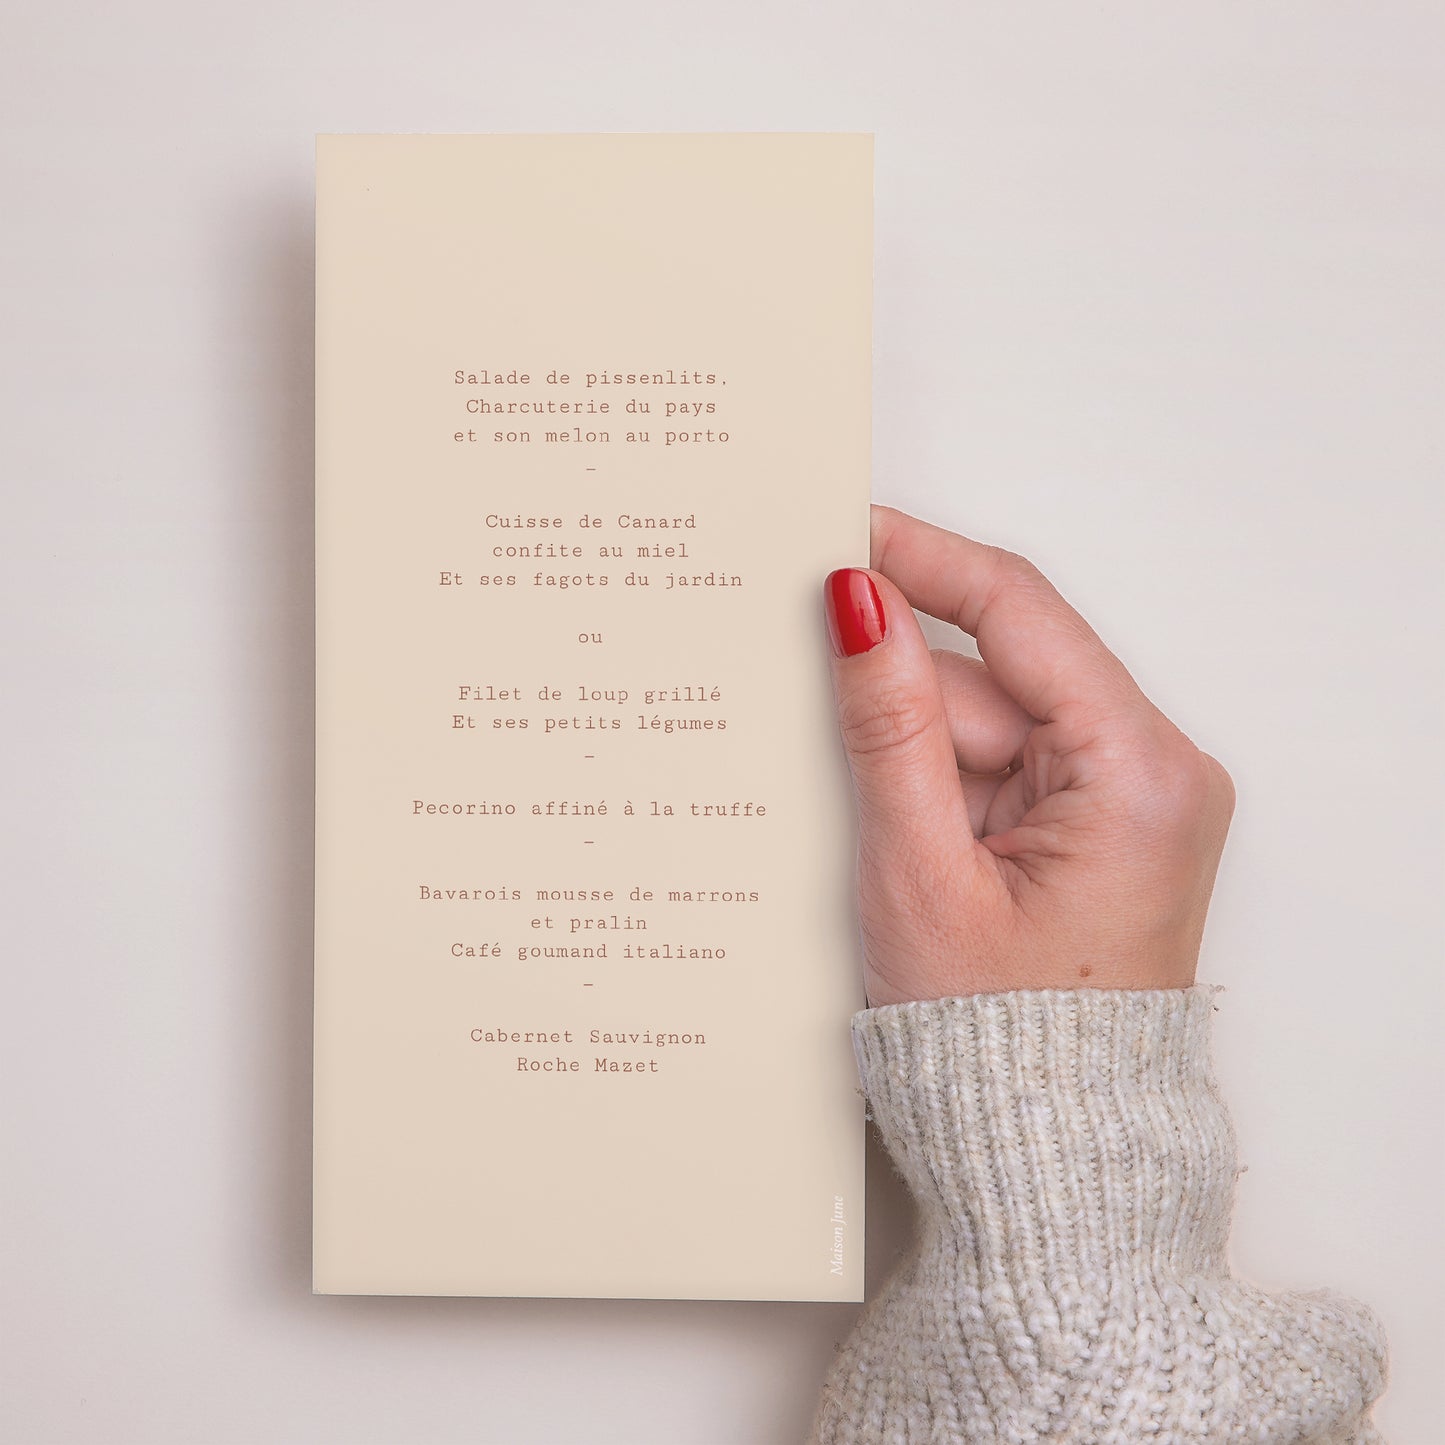 Salade de pissenlits,
Charcuterie du pays
et son melon au porto
–
Cuisse de Canard
confite au miel
Et ses fagots du jardin
ou
Filet de loup grillé
Et ses petits légumes
–
Pecorino affiné à la truffe
–
Bavarois mousse de marrons
et pralin
Café goumand italiano
–
Cabernet Sauvignon
Roche Mazet
Maison June